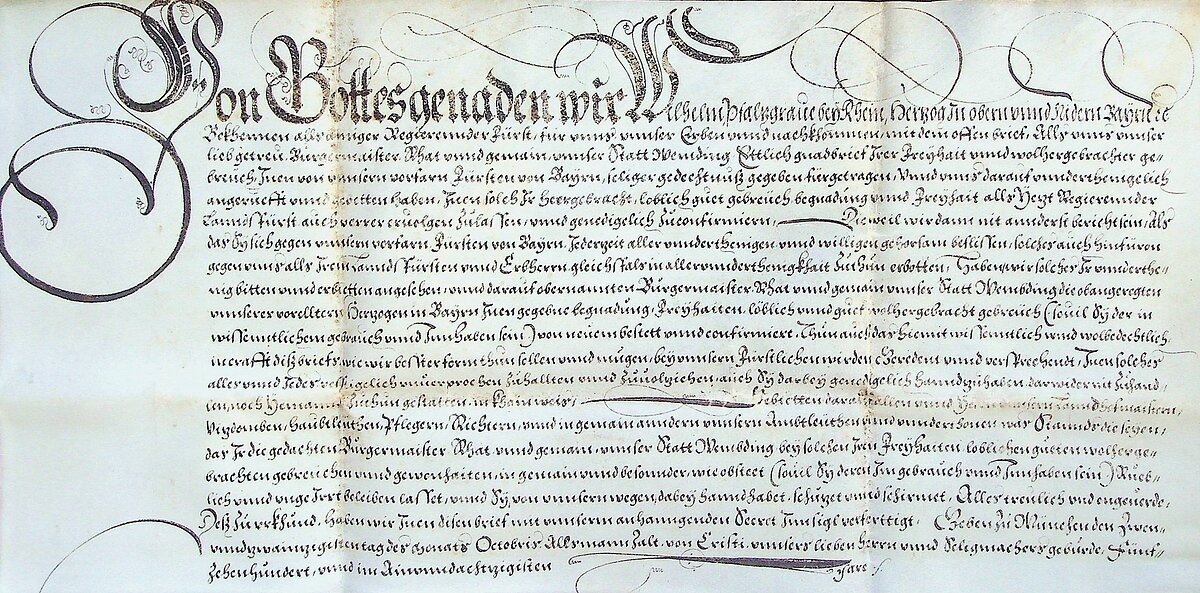 Von Gottes genaden wir Wilhelm Pfaltzgraue bey Rhein, Hertzog in obern vnnd Nidern Bayrn etc
Bekhennen alls ainiger Regierennder Fürst, für vnns vnnser Erben vnnd nachkhommen, mit dem offen brief, Alls vnns vnnser
lieb getreu, Burgermaister, Rhat vnnd gemain, vnnser Statt Wending Ettlich gnadbrief Irer Freyhait vnnd wolhergebrachter ge-
breuch, Inen von vnnsern vorfarn Fürsten von Bayrn, seliger gedechtnuß gegeben fürgetragen, Vnnd vnns darauf vnnderthenigclich
angeruefft vnnd gebetten haben, Inen solch Ir heergebracht, loblich guet gebreüch, begnadung vnnd Freyhait alls Yetzt Regierennder
Lanndsfürst auch verrer zuuolgen Zulassen, vnnd genedigelich Zuconfirmiern, Dieweil wir dann nit annderst bericht sein, Als
das Sy sich gegen vnnsern vorfarn Fürsten von Bayrn, Jederzeit aller vnnderthenigen vnnd willigen gehorsam beflissen, solches auch hinfüron
gegen vnns alls Irem Lanndsfürsten vnnd Erbherrn, gleichsfals in aller vnnderthenigkhait Zuthun erbotten, Haben wir solches Ir vnnderthe-
nig bitten vnnd erbietten angesehen, vnnd darauf obernannten Burgermaister, Rhat vnnd gemain vnnser Statt Wembding die obangeregten
vnnserer vorelltern Hertzogen in Bayrn Inen gegebne begnadung, Freyhaiten, löblich vnnd guet wolhergebracht gebreüch (souil Sy der in
wissenntlichem gebrauch vnnd Innhaben sein) von neuem bestett vnnd confirmiert, Thun auch das hiemit wissenntlich vnnd wolbedechtlich,
in crafft diß briefs, wie wir besster form thun sollen vnnd mügen, bey vnnsern Fürstlichen wirden Geredent vnnd versprechendt, Inen solches
alles vnnd Jedes vesstigclich vnuerprochen Zuhallten vnnd Zuuolziehen, auch Sy darbey genedigclich hanndzuhaben, darwider nit Zuhand-
len, noch Yemannd Zuthun gestatten, in khain weis, Gebietten darauf allen vnnd Yeden vnnsern Lanndhofmaistern,
Vitzdomben, Haubtleüthen, Pflegern, Richtern, vnnd in gemain anndern vnnsern Ambtleüthen vnnd vnnderthonen, was Stannds die seyen,
das Ir die gedachten Burgermaister Rhat vnnd gemain, vnnser Statt Wembding bey solchen Iren Freyhaiten, löblichen gueten wolherge-
brachten gebreüchen vnnd gewonhaiten, in gemain vnnd besonder, wie obsteet (souil Sy deren Im gebrauch vnnd Innhaben sein) Rueb-
lich vnnd vnge Irrt beleiben lasset, vnnd Sy von vnnsern wegen, dabey hanndhabet, schützet vnnd schirmet, Alles treulich vnd ongeuerde,
Deß Zu vrkhund, Haben wir Inen disen brief mit vnnserm anhanngenden Secret Innsigl verferttigt, Geben Zu München den Zwen-
vnndzwainzigisten tag des monats Octobris, Alls mann Zalt, von Cristi, vnnsers lieben Herrn vnnd Seligmachers geburde, Fünf-
Zehenhundert, vnnd im Ainvnndachtzigisten Jare